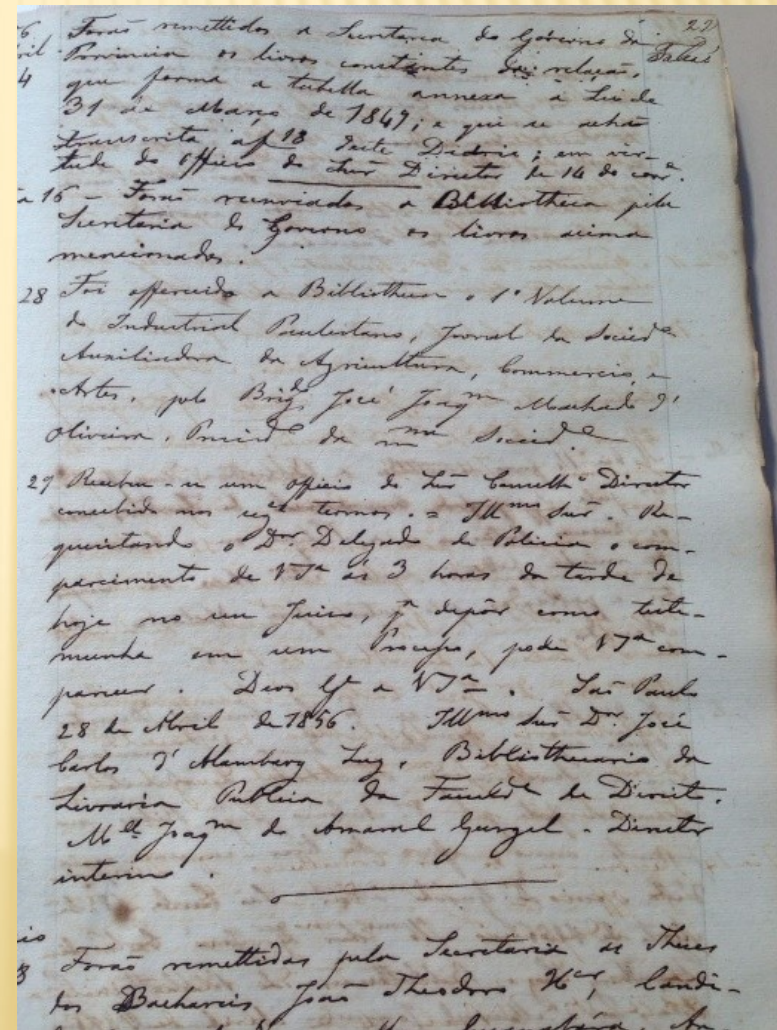 22
Forão remettidos a Secretaria do Governo da
Provincia os livros constantes da relação,
que forma a tabella annexa à Lei de
31 de Março de 1849; e que se achão
transcrita a f 18 deste Diario; em vir-
tude do officio do Snr Director de 14 do corre.
16 - Forão reenviados a Bibliotheca pela
Secretaria do Governo os livros acima
mencionados.
28 Foi offerecido a Bibliotheca o 1º Volume
do Industrial Paulistano, Jornal da Socied.e
Auxiliadora da Agricultura, Commercio, e
Artes, pelo Brig.do José Joaq.m Machado d'
Oliveira, Presid.e da m.ma Socied.e
29 Recebeu-se um officio do Snr Conselh.o Director
concebido nos seg.tes termos. = Ill.mo Snr. Re-
quisitando o D.or Delegado de Policia o com-
parecimento de VS.a às 3 horas da tarde de
hoje no seu Juizo, p.a depôr como teste-
munha em um Processo, pode VS.a com-
parecer. Deos G.e a VS.a. São Paulo
28 de Abril de 1856. Ill.mo Snr D.or José
Carlos d'Alambary Luz, Bibliothecario da
Livraria Publica da Faculd.e de Direito.
M.el Joaq.m do Amaral Gurgel - Director
interino.
Forão remettidas pela Secretaria as Theses
dos Bachareis João Theodoro X.er, Candi-